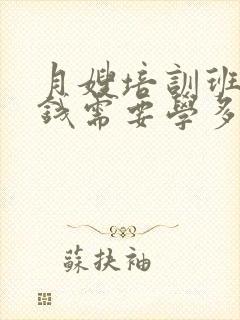 月嫂培訓班
錢需要學多
蘇扶袖